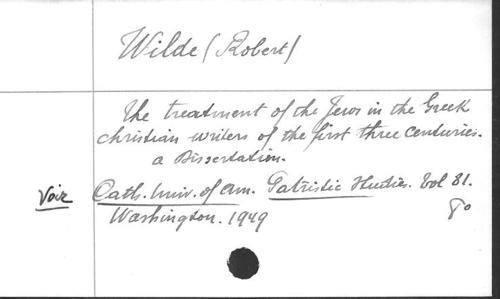 Wilde (Robert)
The treatment of the Jews in the Greek
christian writers of the first three centuries.
a Dissertation.
Voir Cath. Univ. of Am. Patristic Studies. Vol 81.
Washington. 1949 8º